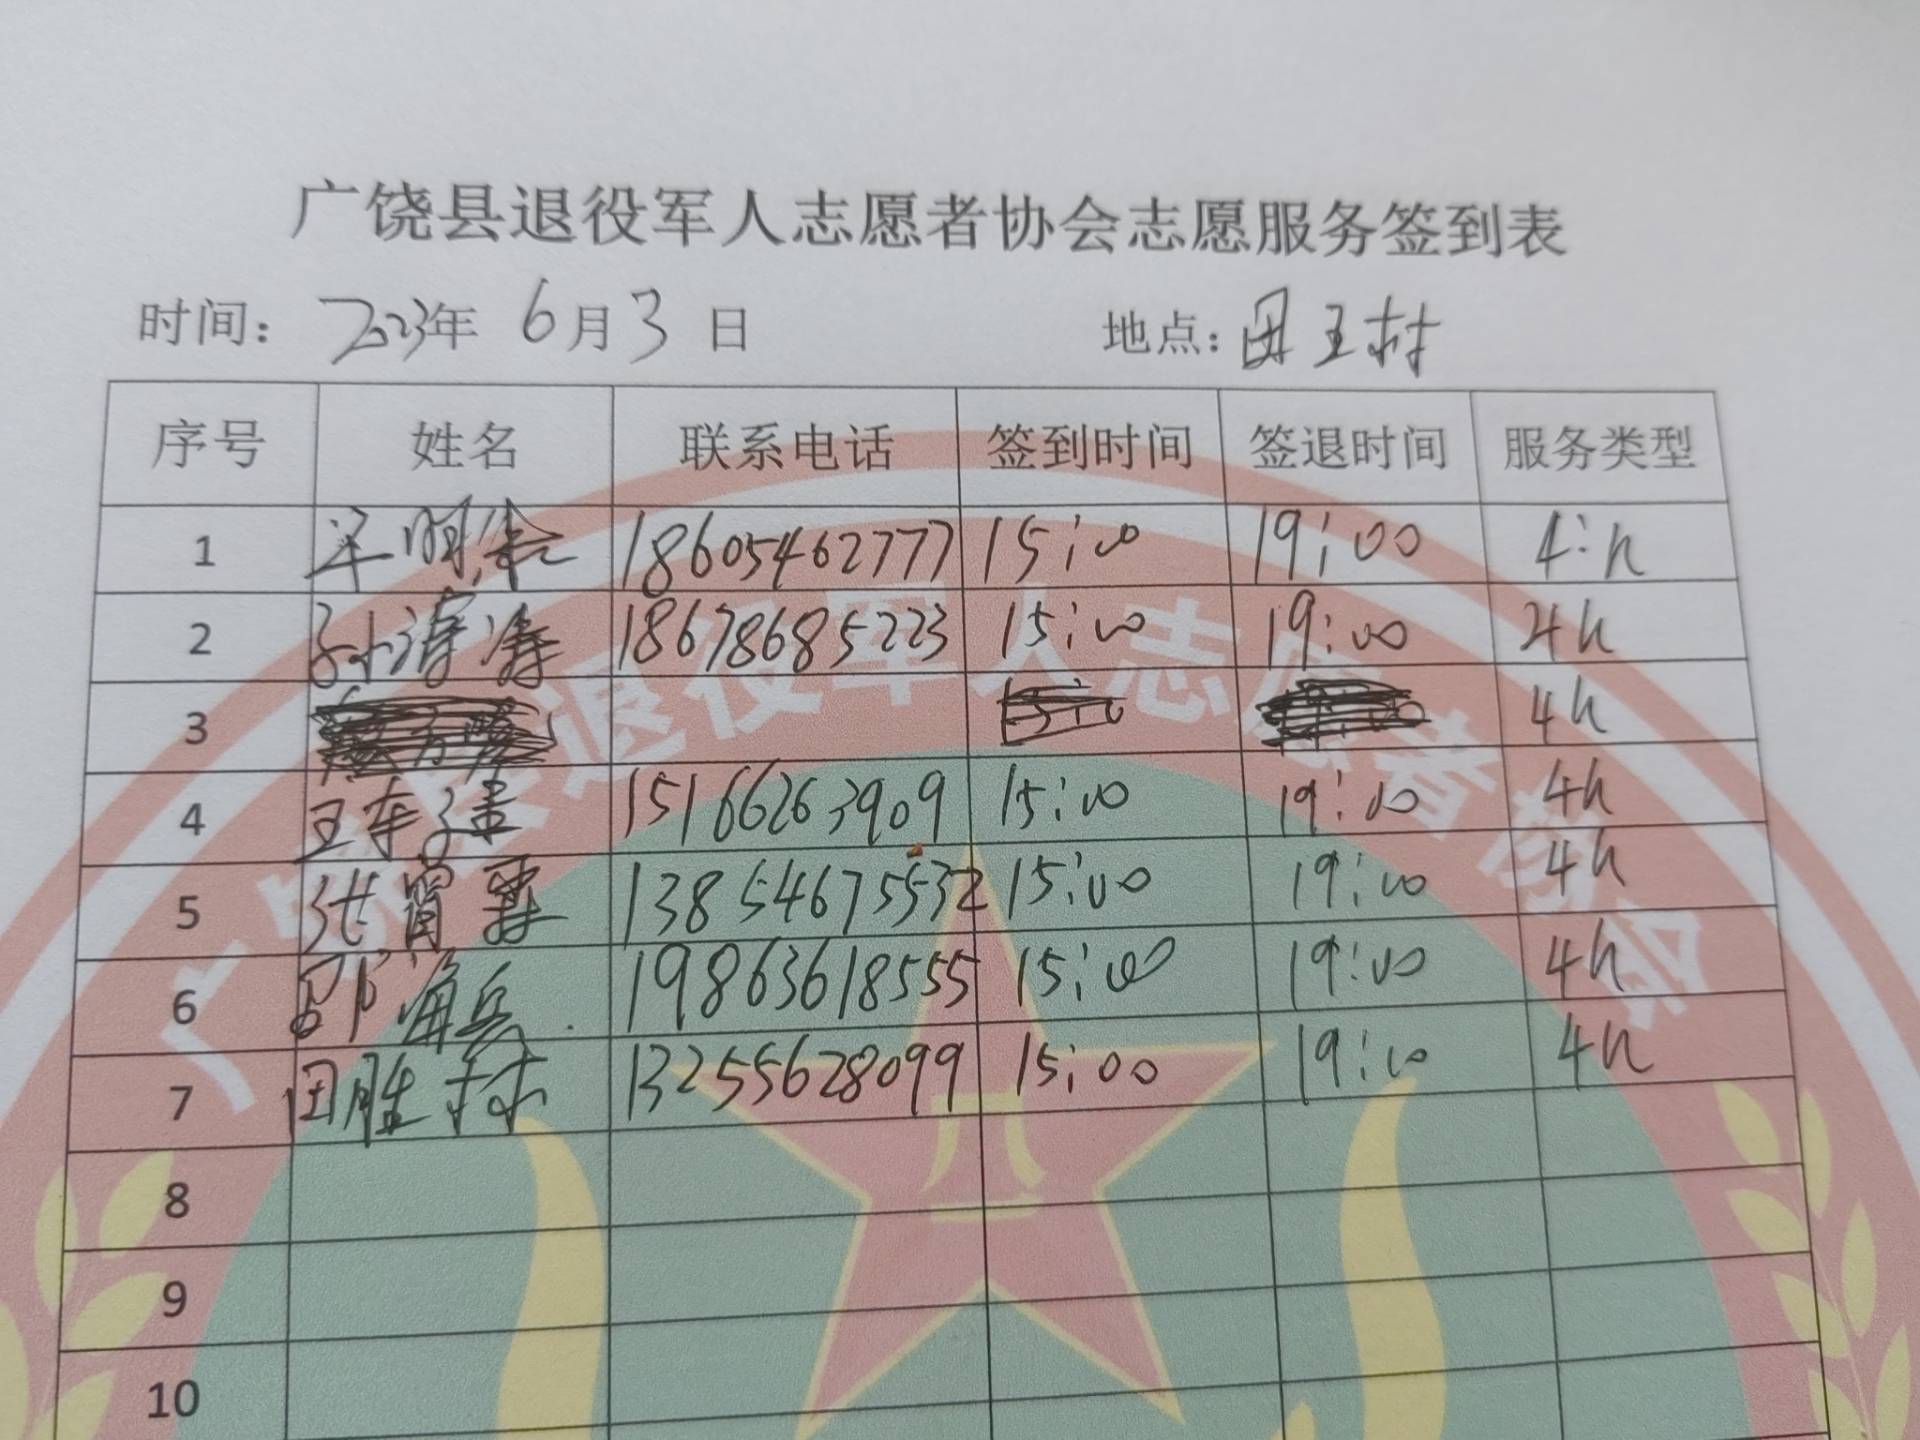 广饶县退役军人志愿者协会志愿服务签到表
时间: 2023年 6月3日 地点: 田王村
序号 姓名 联系电话 签到时间 签退时间 服务类型
1 18605462777 15:00 19:00 4:h
2 孙涛涛 18678685223 15:00 19:00 4h
3 4h
4 王车子孟 15166263909 15:00 19:00 4h
5 张霄霖 13854675532 15:00 19:00 4h
6 海兵 19863618555 15:00 19:00 4h
7 田胜村 13255628099 15:00 19:00 4h
8
9
10
广饶县退役军人志愿者协会
八一